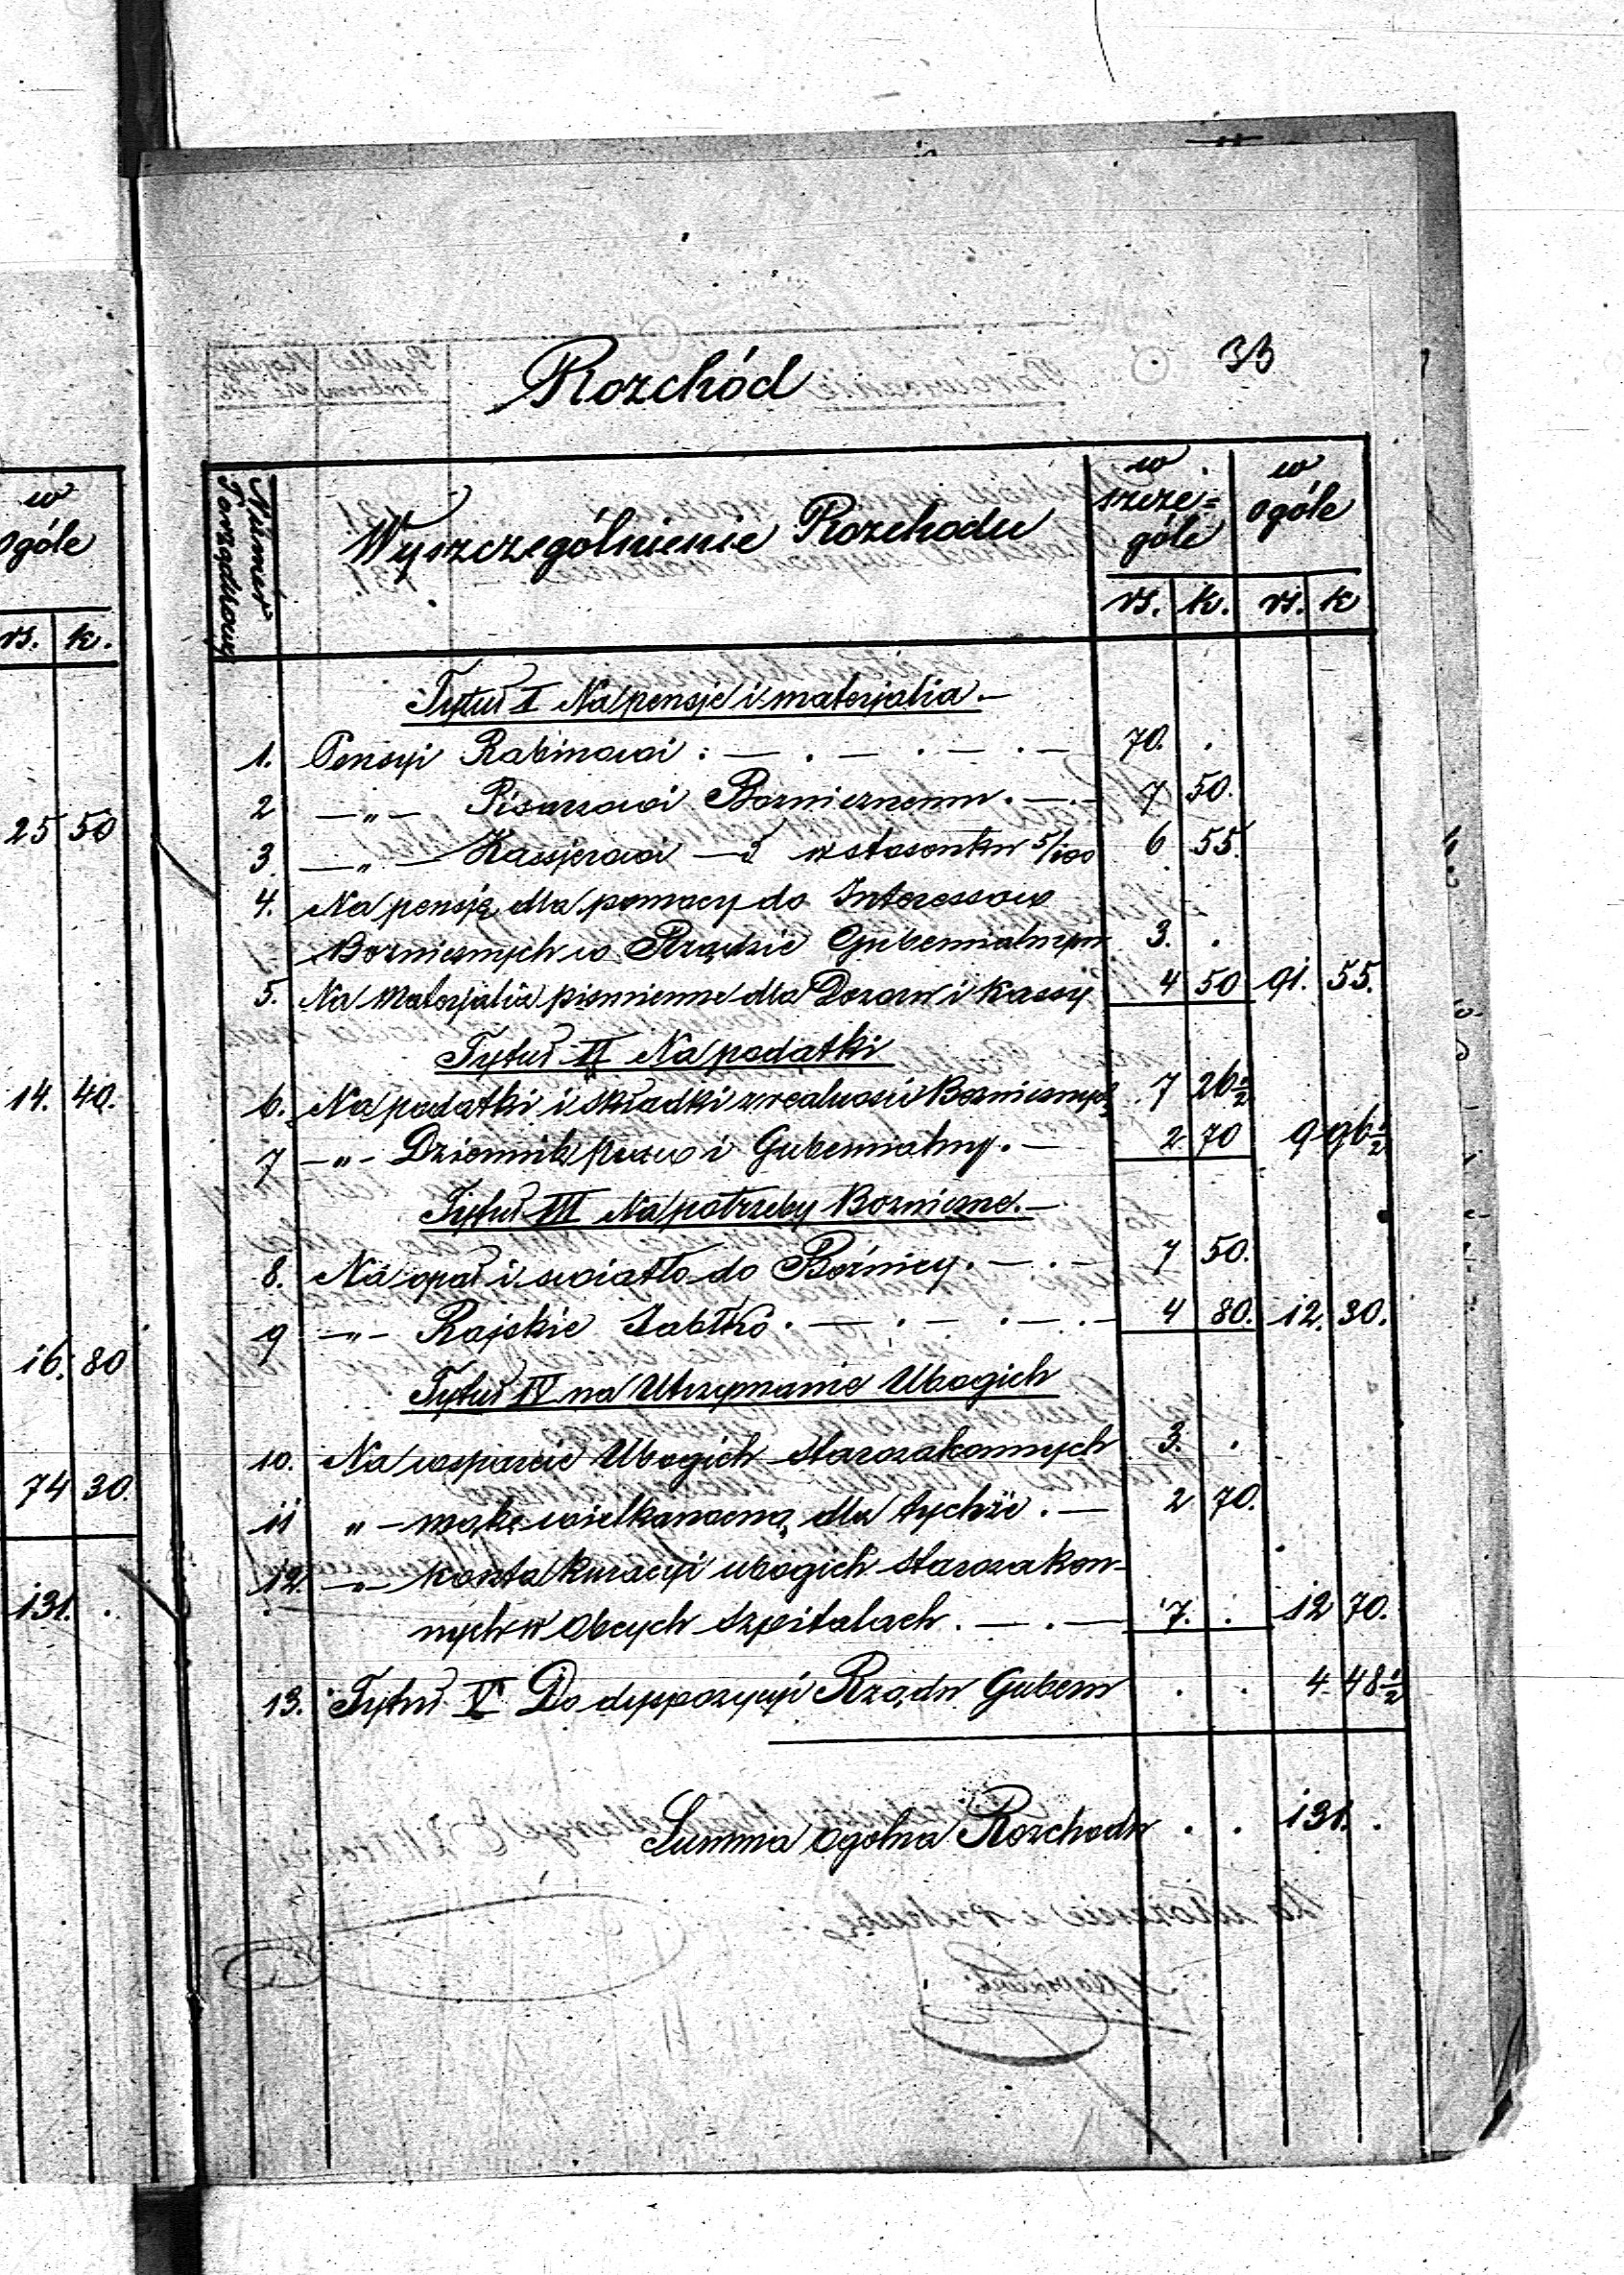 w
ogóle
rs. k.
25 50
14. 40.
16. 80
74 30.
131. .
33
Rozchód
Numer Porządkowy
Wyszczególnienie Rozchodu
w szcze=
góle
w
ogóle
rs. k. rs. k
Tytuł I Na pensje i materjalia.—
1. Pensyi Rabinowi : — . — . — . — 70. .
2 —„— Pisarzowi Boznicznemu . — . — 7 50.
3. —„— Kassjerowi — w stosunku 5/100 6 55.
4. Na pensję dla pomocy do Interessow
Boznicznych w Rządzie Gubernialnym 3. .
5. Na Materjalia piśmienne dla Dozoru i Kassy 4 50 91. 55.
Tytuł II Na podatki
6. Na podatki i składki z realności Boznicznych 7 26 1/2
7 —„— Dziennik praw i Gubernialny. — 2 70 9 96 1/2
Tytuł III Na potrzeby Bozniczne.—
8. Na opał i swiatło do Bóźnicy. — . — 7 50.
9 —„— Rajskie Jabłko . — . — . — . — 4 80. 12. 30.
Tytuł IV na Utrzymanie Ubogich
10. Na wsparcie Ubogich Starozakonnych 3. .
11 „— mąkę wielkanocną dla tychże . — 2 70.
12. —„— koszta kuracyi ubogich starozakon-
nych w Obcych Szpitalach . — . — 7. . 12 70.
13. Tytuł V Do dyspozycyi Rządu Gubern . . 4 48 1/2
Summa Ogolna Rozchodu . . 131. .